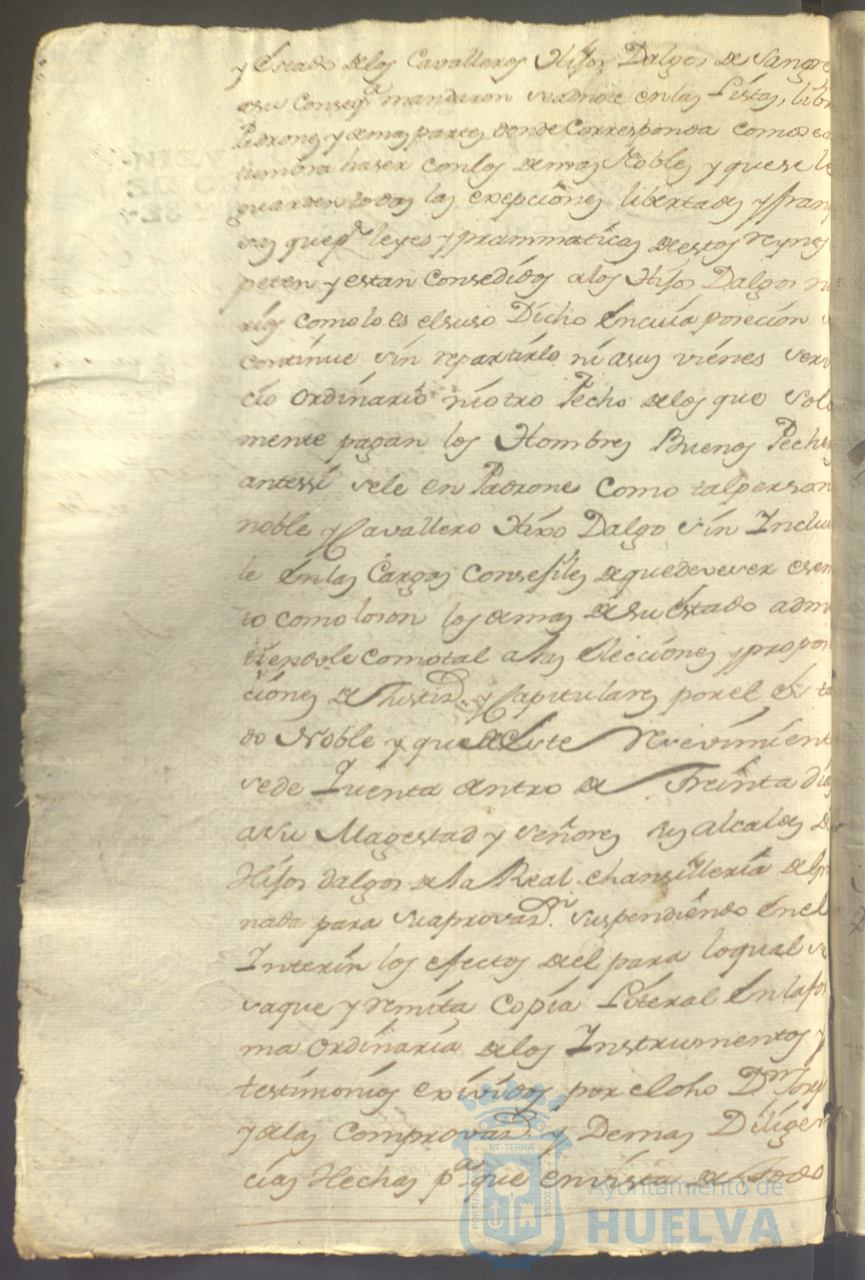 y Estado de los Cavalleros Hijos Dalgos de Sangre
asu Conseq.ª mandaron se adnote en las Listas, libr
Padrones y demas partes donde Corresponda como se a
tumbra haser con los demas Nobles y que se le
guarden todas las exepciones libertades y fran
as que p.r leyes y prammaticas de estos reynos
peten y estan Consedidos a los Hijos Dalgos no
rios como lo es el suso Dicho En cuia posecion s
continue sin repartirle ni a sus vienes serv
cio ordinario ni otro Pecho de los que sola
mente pagan los Hombres Buenos Peche
antessi se le en Padrone Como tal person
noble y Cavallero Hixo Dalgo sin Inclui
le En las Cargas Consejiles de que deve ser esen
to como lo son los demas de su Estado admi
tiendole como tal a las Elecciones y propoci
ciones de Justicia y Capitulares por el Esta
do Noble y que de Este Recevimient
se de Quenta dentro de Treinta dias
a su Magestad y señores sus alcaldes de
Hijos dalgos de la Real chansilleria de Gra
nada para su aprovas.n suspendiendo En el
Interin los efectos del para lo qual se
saque y remita Copia Literal En la for
ma ordinaria de los Instrumentos y
testimonios exividos por el dho D.n Josep
y de las Comprovas.s y Demas Diligen
cias Hechas p.ª que en vista de todo
BT TERRÆ
PORTUS
CUSTODIA
Ayuntamiento de
HUELVA